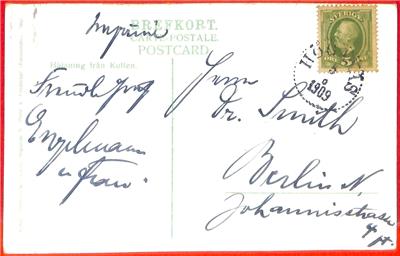 BREFKORT.
CARTE POSTALE.
POSTCARD.
Helsning från Kullen.
SVERIGE
5
1909
Freundl. Gruß
Engelmann
u. Frau.
Herrn
Dr. Smith
Berlin N.
Johannisstrasse
4 pt.